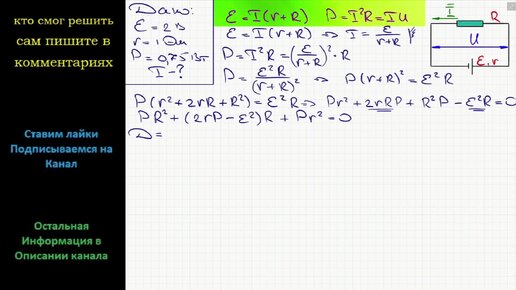 кто смог решить
сам пишите в
комментариях
Ставим лайки
Подписываемся на
Канал
Остальная
Информация в
Описании канала
Дано:
ℰ = 2 В
r = 1 Ом
P = 0,75 Вт
I - ?
ℰ = I(r+R) P = I²R = IU
ℰ = I(r+R) ⇒ I = ℰ/(r+R)
P = I²R = (ℰ/(r+R))² · R
P = ℰ²R/(r+R)² ⇒ P(r+R)² = ℰ²R
P(r² + 2rR + R²) = ℰ²R ⇒ Pr² + 2rRP + R²P − ℰ²R = 0
PR² + (2rP − ℰ²)R + Pr² = 0
D =
I
R
U
ℰ, r